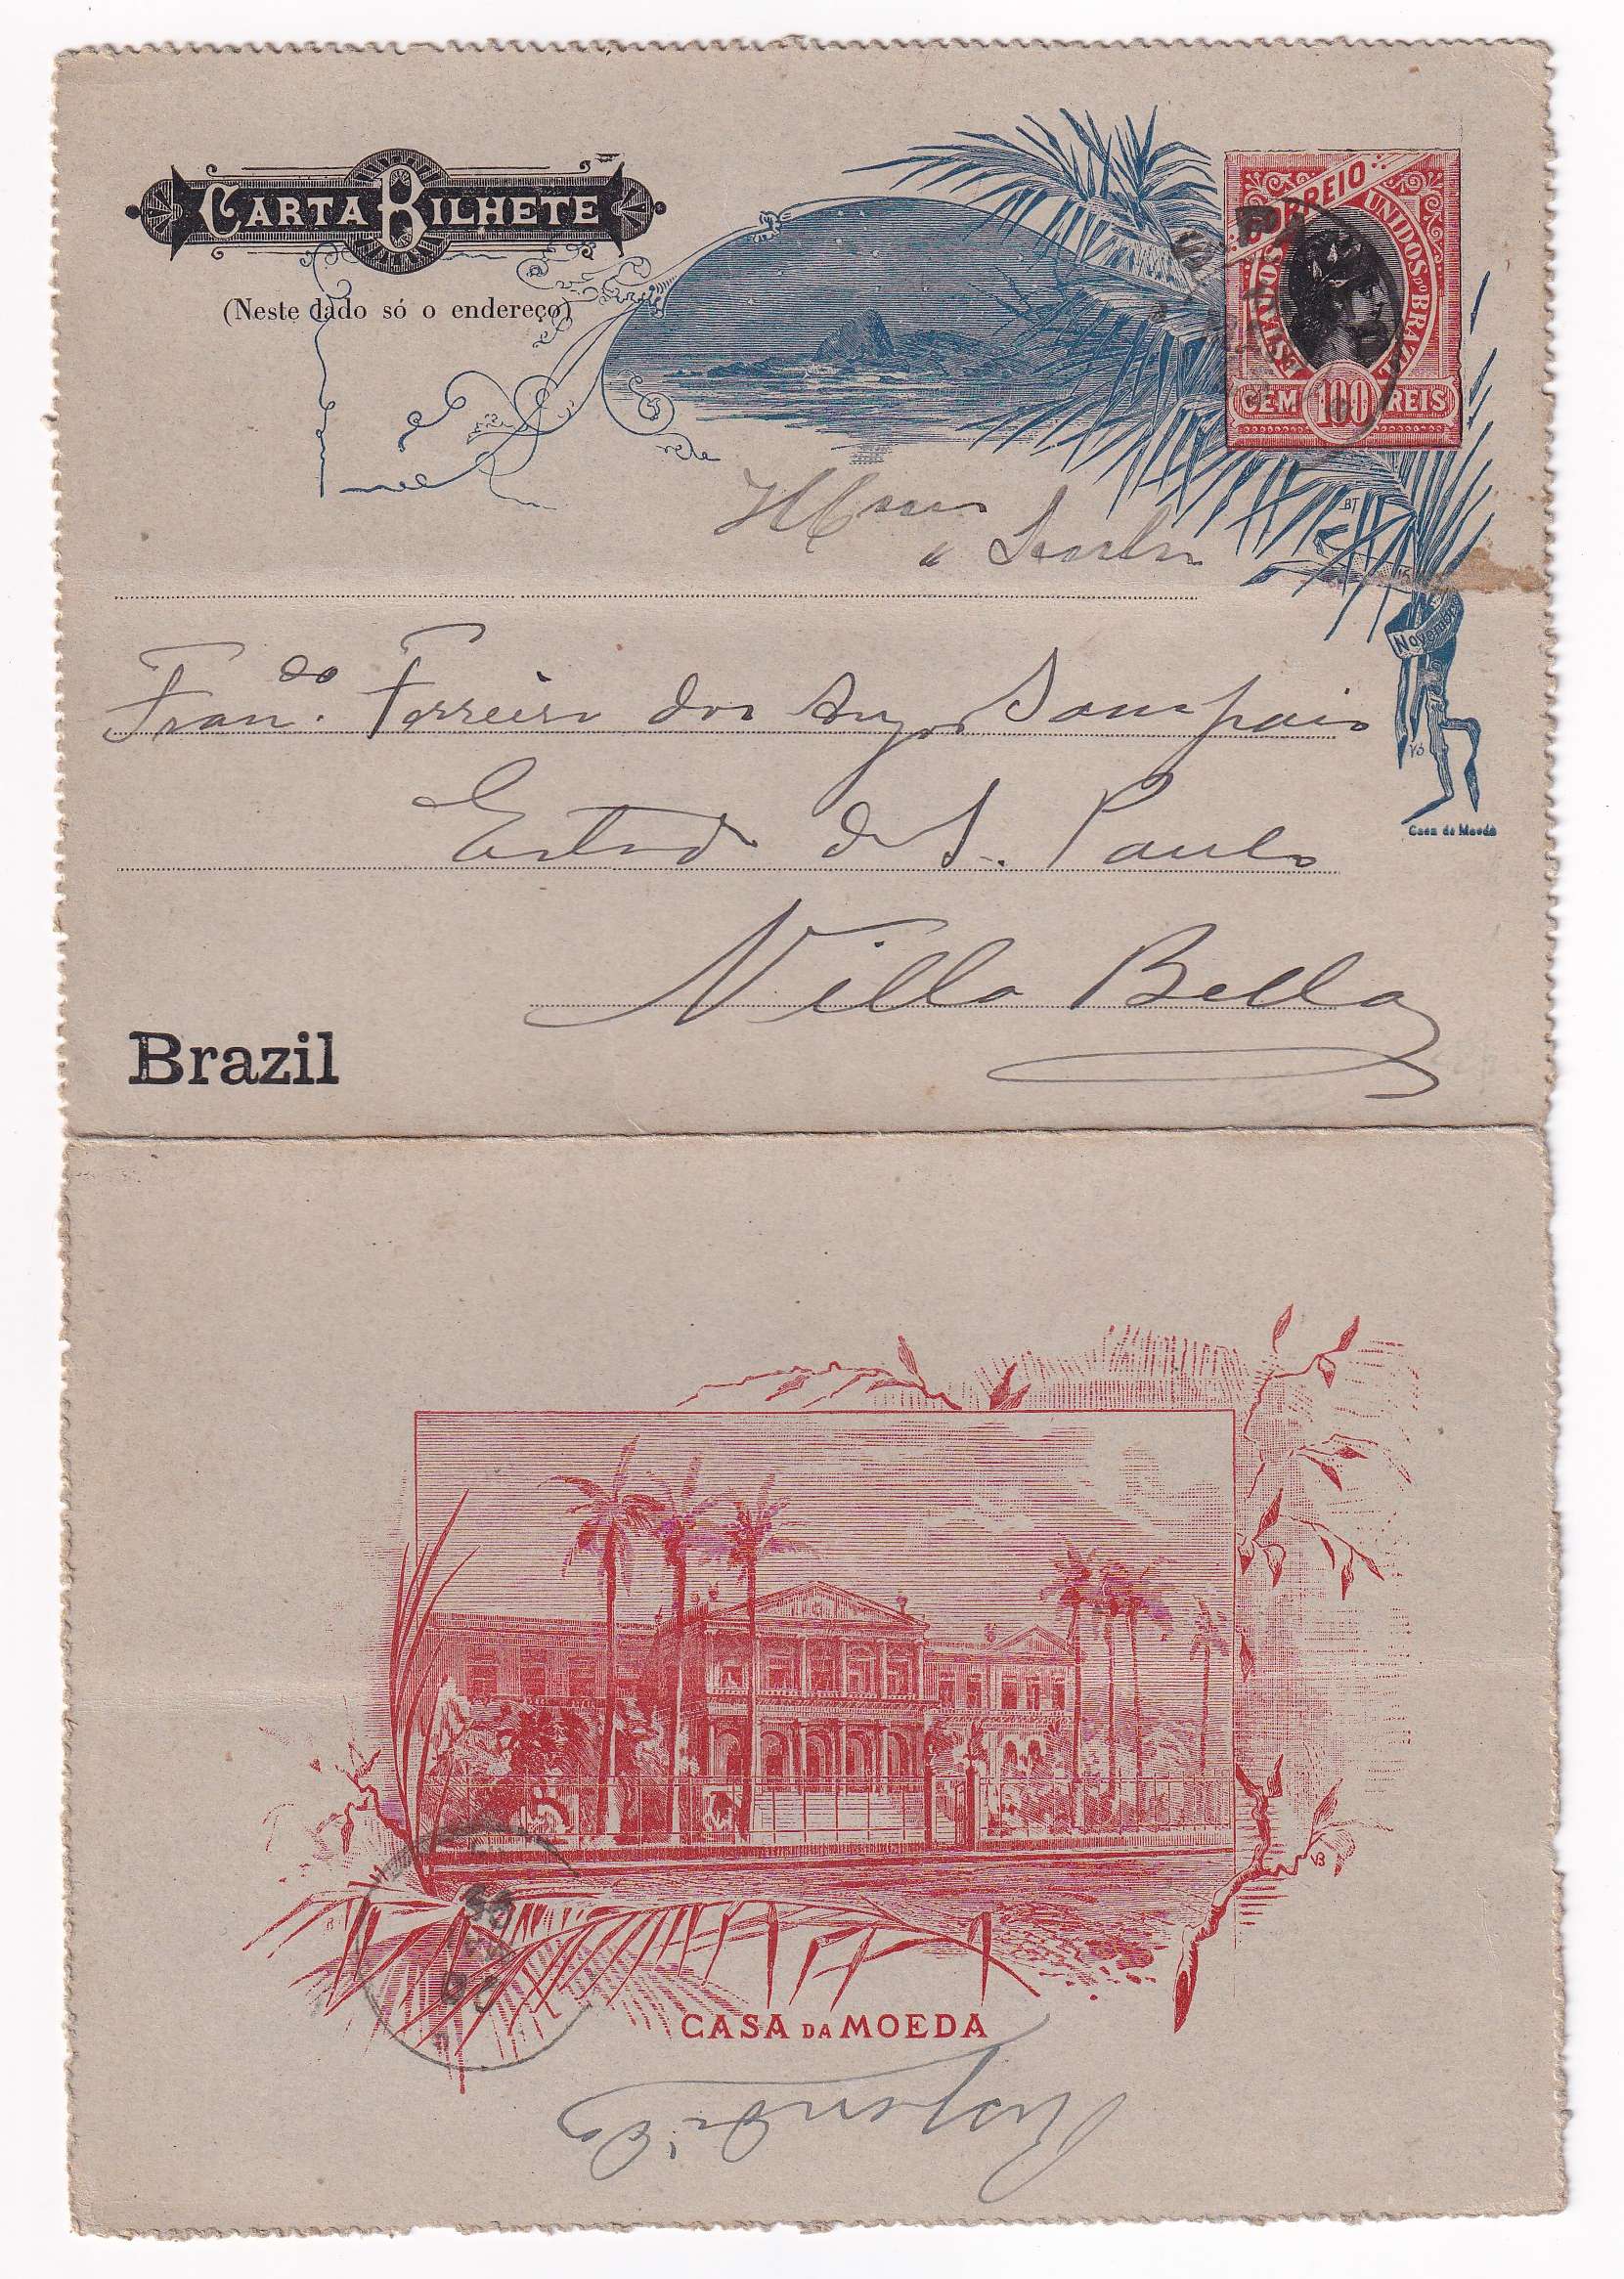 CARTA BILHETE
(Neste lado só o endereço)
CORREIO
ESTADOS UNIDOS DO BRAZIL
CEM 100 REIS
BT
15
Novembro
Illmo Senr
Franco. Ferreira dos Anjos Sampaio
VB
Estado de S. Paulo
Casa da Moeda
Villa Bella
Brazil
VB
CASA DA MOEDA
Respondida